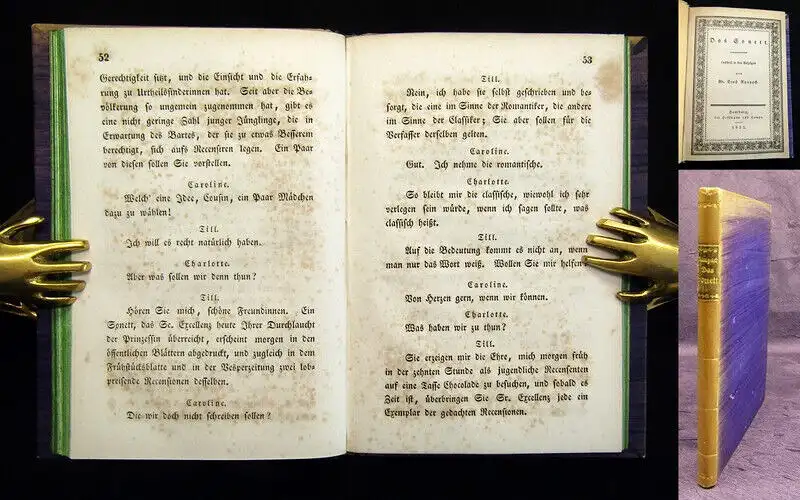 52
Gerechtigkeit sitzt, und die Einsicht und die Erfah-
rung zu Urtheilsfinderinnen hat. Seit aber die Be-
völkerung so ungemein zugenommen hat, gibt es
eine nicht geringe Zahl junger Jünglinge, die in
Erwartung des Bartes, der sie zu etwas Besserem
berechtigt, sich aufs Recensiren legen. Ein Paar
von diesen sollen Sie vorstellen.
Caroline.
Welch' eine Idee, Cousin, ein Paar Mädchen
dazu zu wählen!
Till.
Ich will es recht natürlich haben.
Charlotte.
Aber was sollen wir denn thun?
Till.
Hören Sie mich, schöne Freundinnen. Ein
Sonett, das Se. Excellenz heute Ihrer Durchlaucht
der Prinzessin überreicht, erscheint morgen in den
öffentlichen Blättern abgedruckt, und zugleich in dem
Frühstücksblatte und in der Vesperzeitung zwei lob-
preisende Recensionen desselben.
Caroline.
Die wir doch nicht schreiben sollen?
53
Till.
Nein, ich habe sie selbst geschrieben und be-
sorgt, die eine im Sinne der Romantiker, die andere
im Sinne der Classiker; Sie aber sollen für die
Verfasser derselben gelten.
Caroline.
Gut. Ich nehme die romantische.
Charlotte.
So bleibt mir die classische, wiewohl ich sehr
verlegen sein würde, wenn ich sagen sollte, was
classisch heißt.
Till.
Auf die Bedeutung kommt es nicht an, wenn
man nur das Wort weiß. Wollen Sie mir helfen?
Caroline.
Von Herzen gern, wenn wir können.
Charlotte.
Was haben wir zu thun?
Till.
Sie erzeigen mir die Ehre, mich morgen früh
in der zehnten Stunde als jugendliche Recensenten
auf eine Tasse Chocolade zu besuchen, und sobald es
Zeit ist, überbringen Sie Sr. Excellenz jede ein
Exemplar der gedachten Recensionen.
Das Sonett.
Lustspiel in drei Aufzügen
von
Dr. Ernst Raupach.
Hamburg,
bei Hoffmann und Campe.
Das
Sonett